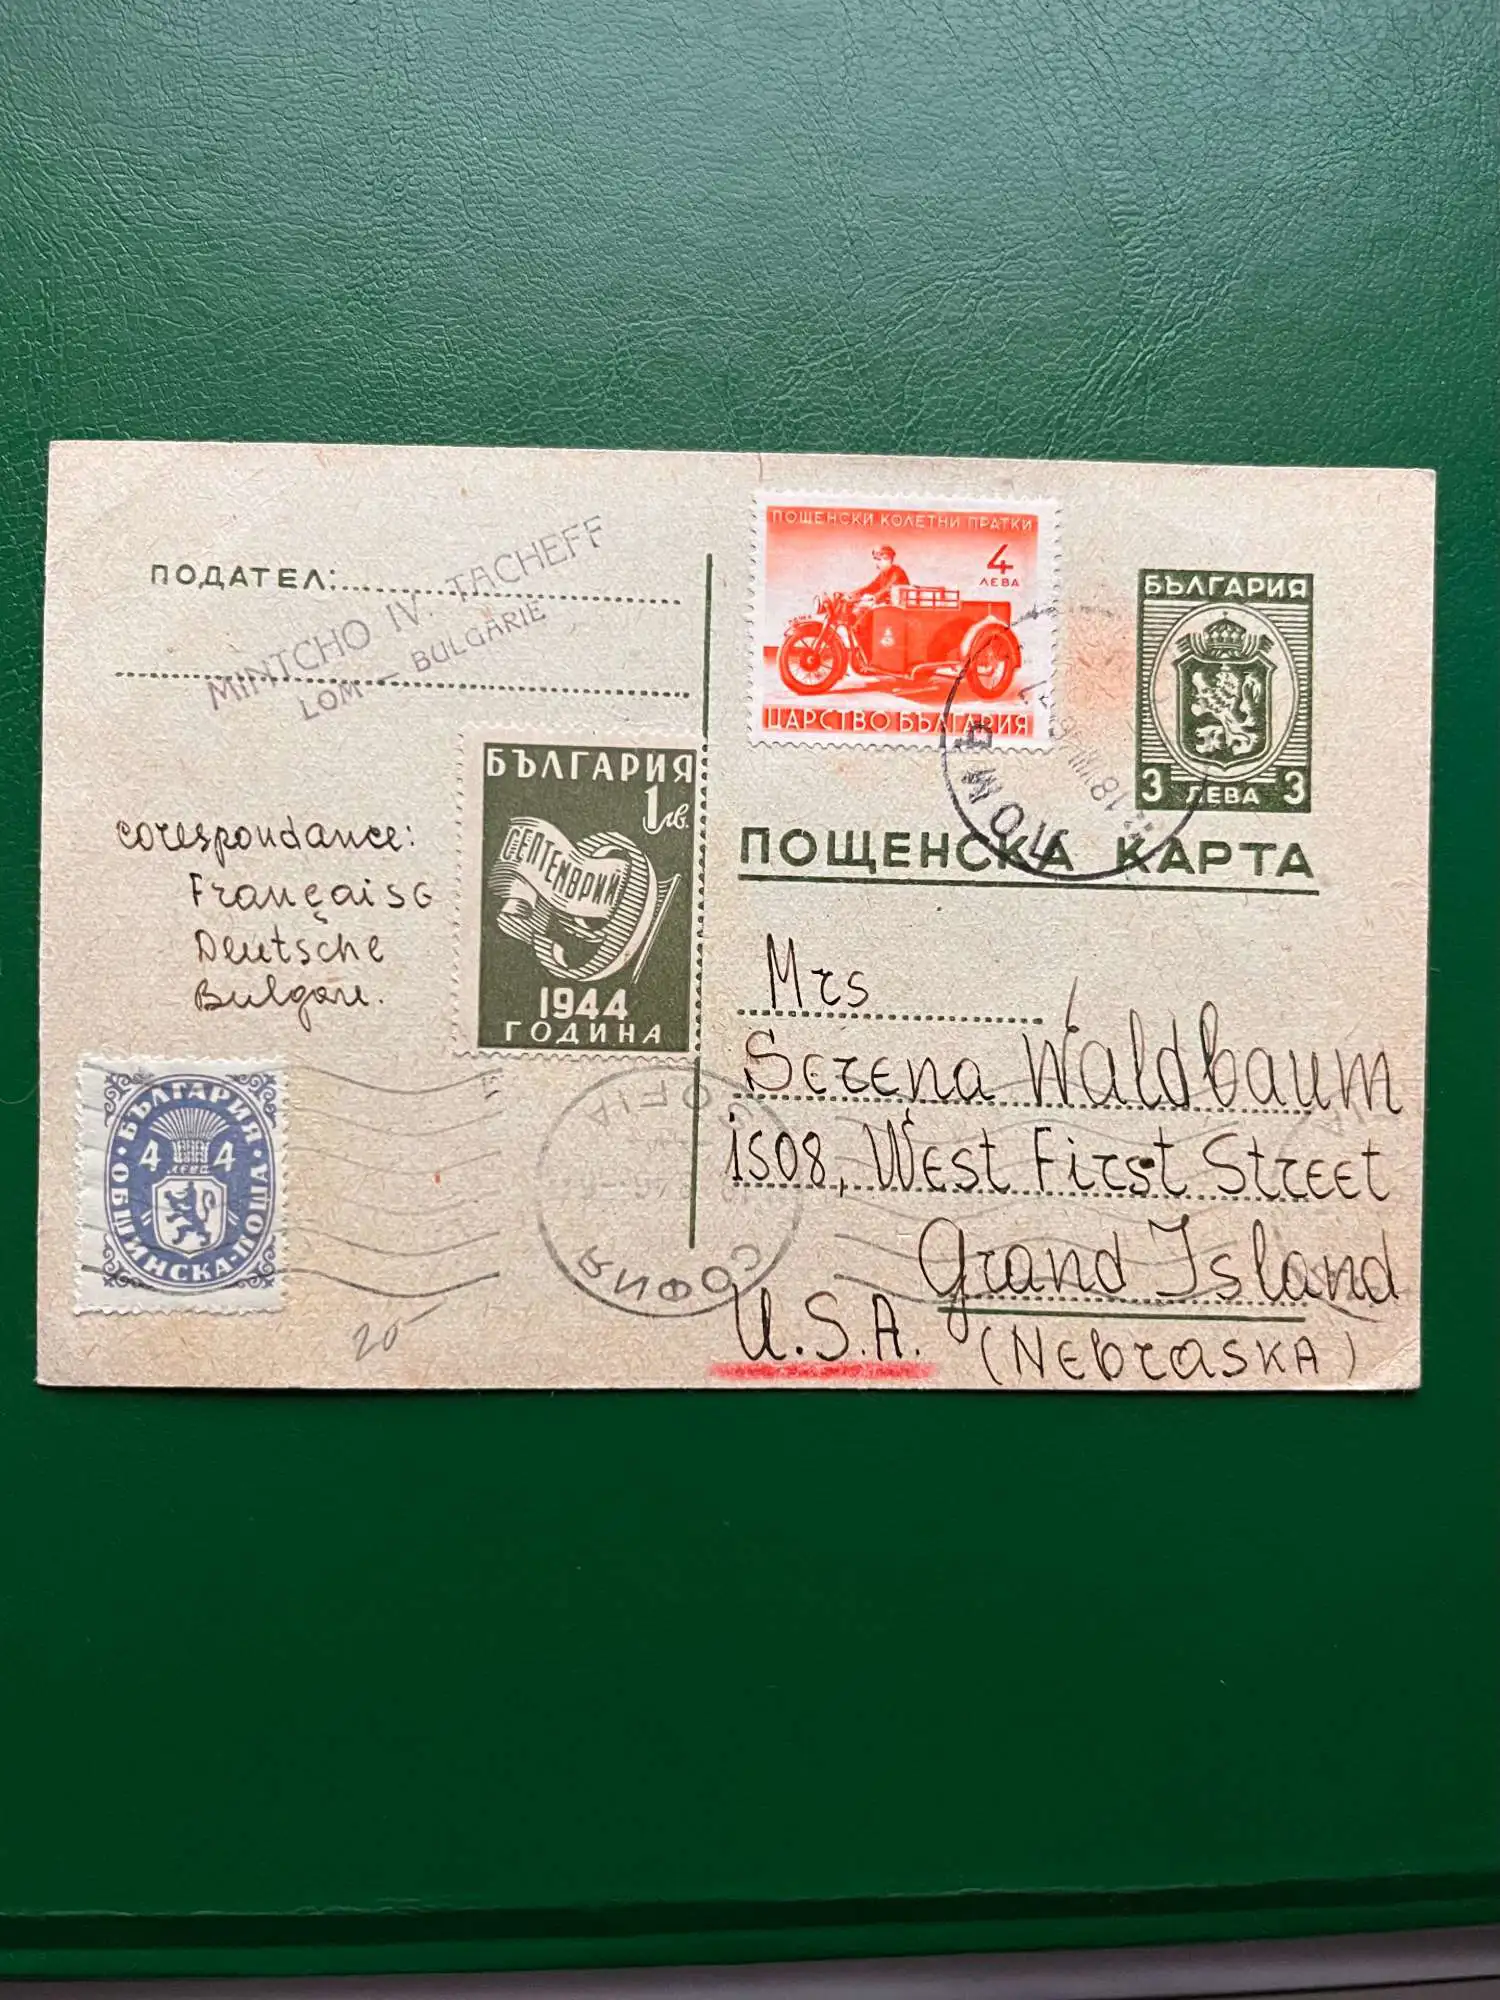 ПОДАТЕЛ:
MINTCHO IV. TACHEFF
LOM — BULGARIE
ПОЩЕНСКИ КОЛЕТНИ ПРАТКИ
4
ЛЕВА
ЦАРСТВО БЪЛГАРИЯ
БЪЛГАРИЯ
3 ЛЕВА 3
ЛОМЪ
18 VIII
ПОЩЕНСКА КАРТА
БЪЛГАРИЯ
1 лв.
СЕПТЕМВРИЙ
1944
ГОДИНА
corespondance:
Française
Deutsche
Bulgare.
БЪЛГАРИЯ
4 4
ЛЕВА
ОБЩИНСКА ПОЩА
SOFIA
СОФИЯ
20-
Mrs
Serena Waldbaum
1508, West First Street
Grand Island
U.S.A. (Nebraska)